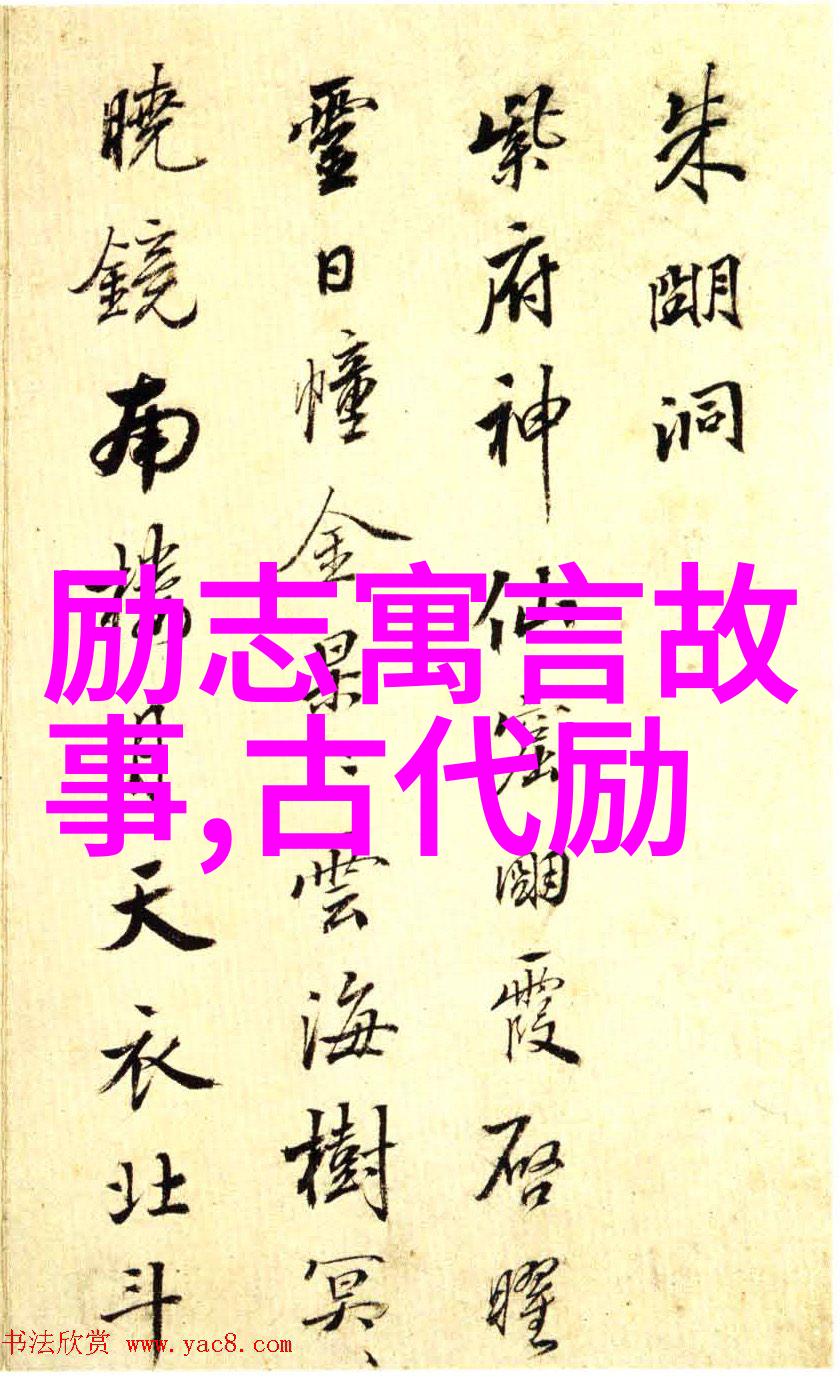 朱朙洞
紫府神仙窟朙霞启曜
靈日幢金杲〻雲海樹冥〻
曉鏡南月天衣北斗
励志寓言故
事,古代励
书法欣赏 www.yac8.com